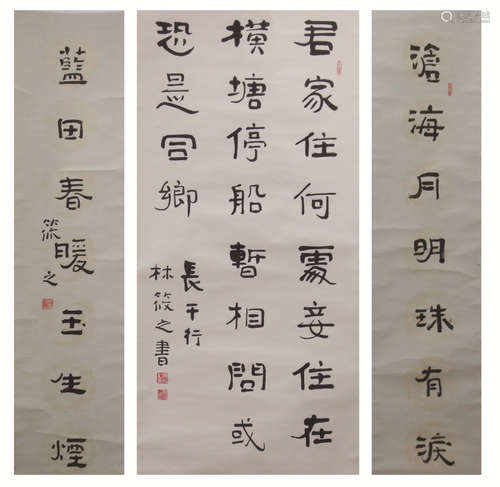 滄海月明珠有淚
君家住何處妾住在
橫塘停船暫相問或
恐是同鄉
長干行
林筱之書
藍田春暖玉生煙
筱之